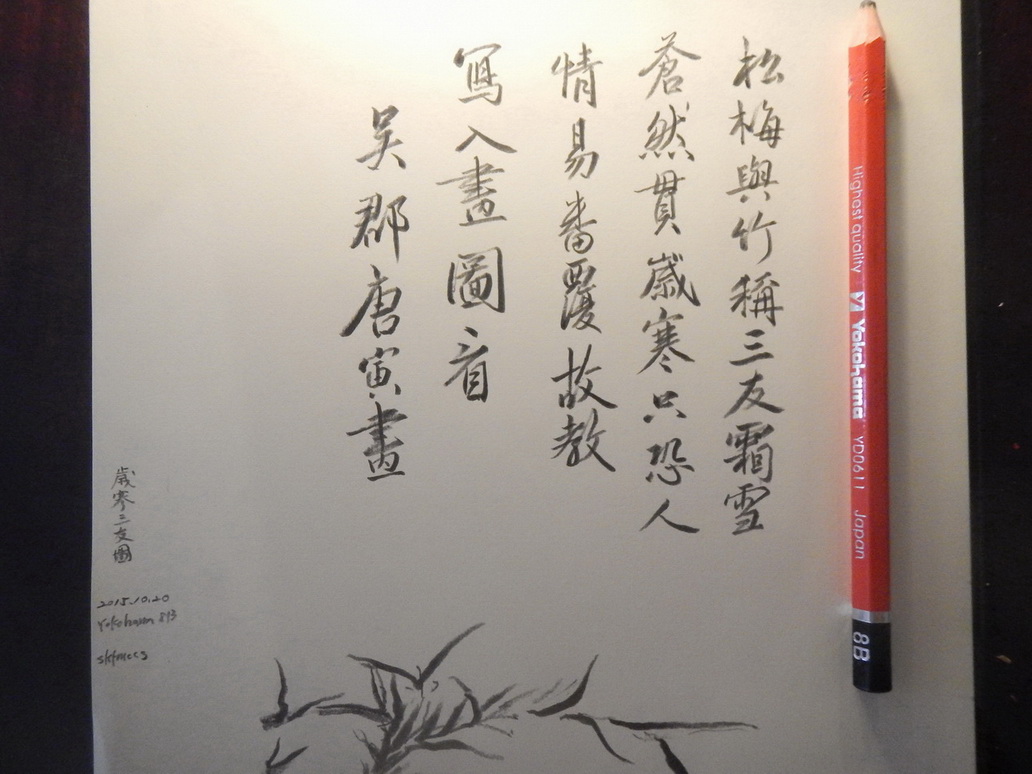 松梅與竹稱三友霜雪
蒼然貫歲寒只恐人
情易番覆故教
寫入畫圖看
吳郡唐寅畫
歲寒三友圖
2015.10.20
Yokohama 8B
Highest quality Yokohama YD0611 Japan
8B